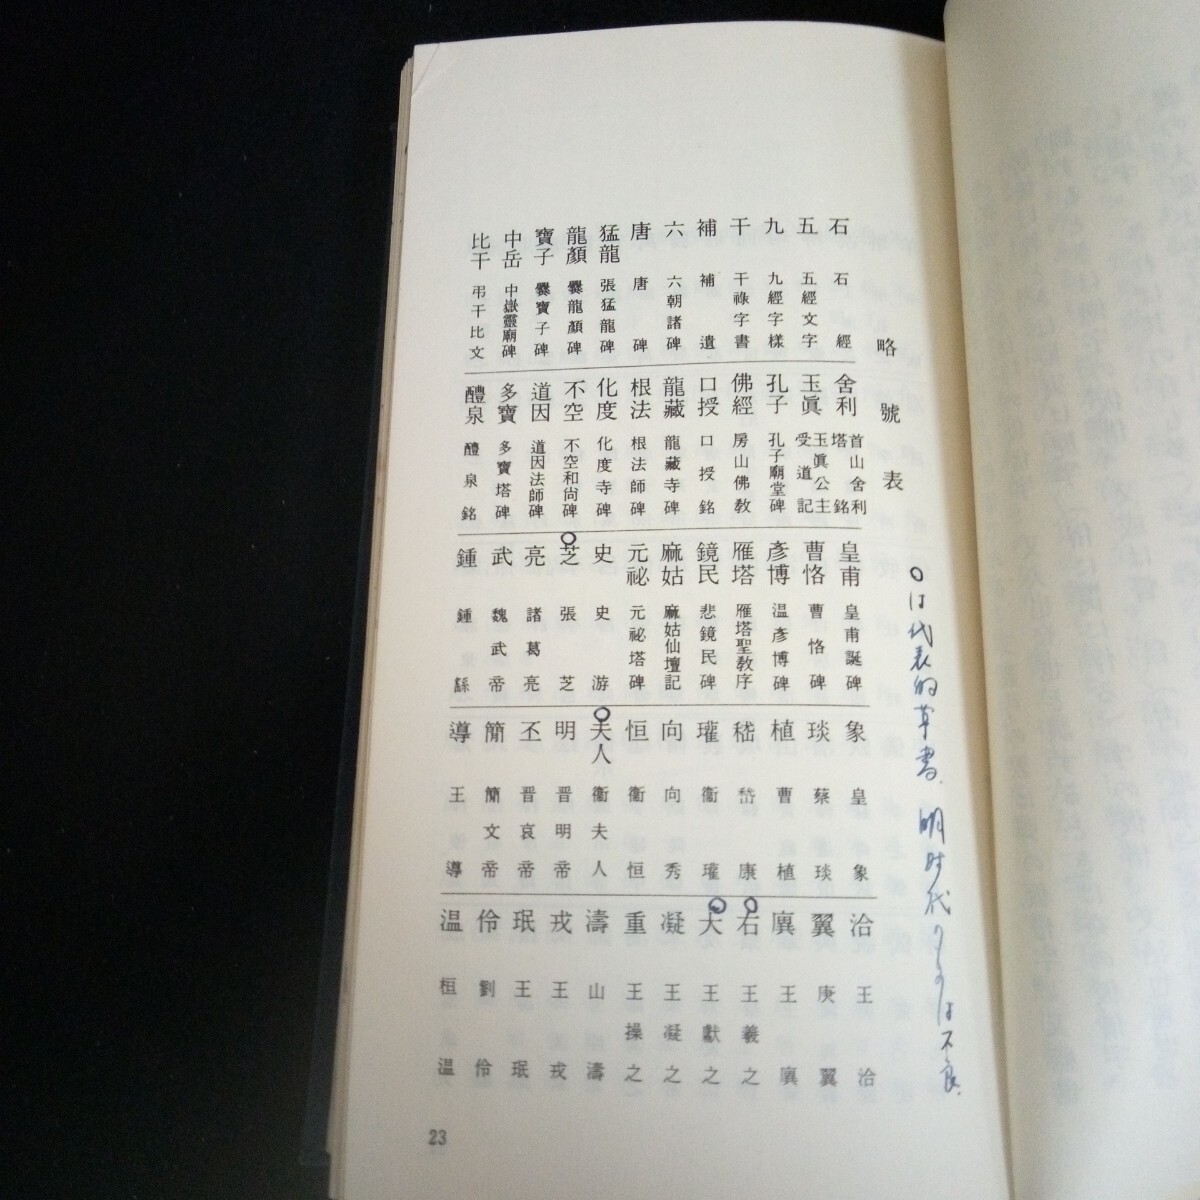 略號表
石 石經
五 五經文字
九 九經字樣
干 干祿字書
補 補遺
六 六朝諸碑
唐 唐碑
猛龍 張猛龍碑
龍顏 爨龍顏碑
寶子 爨寶子碑
中岳 中嶽靈廟碑
比干 弔干比文
舍利 首山舍利塔銘
玉眞 玉眞公主受道記
孔子 孔子廟堂碑
佛經 房山佛教
口授 口授銘
龍藏 龍藏寺碑
根法 根法師碑
化度 化度寺碑
不空 不空和尙碑
道因 道因法師碑
多寶 多寶塔碑
醴泉 醴泉銘
皇甫 皇甫誕碑
曹恪 曹恪碑
彥博 温彥博碑
雁塔 雁塔聖教序
鏡民 悲鏡民碑
麻姑 麻姑仙壇記
元祕 元祕塔碑
史 史游
芝 張芝
亮 諸葛亮
武 魏武帝
鍾 鍾繇
象 皇象
琰 蔡琰
植 曹植
嵇 嵆康
瓘 衞瓘
向 向秀
恒 衞恒
夫人 衞夫人
明 晋明帝
丕 晋哀帝
簡 簡文帝
導 王導
洽 王洽
翼 庾翼
廙 王廙
右 王羲之
大 王獻之
凝 王凝之
重 王操之
濤 山濤
戎 王戎
珉 王珉
伶 劉伶
温 桓温
○は代表的草書、明時代のものは不良、
23